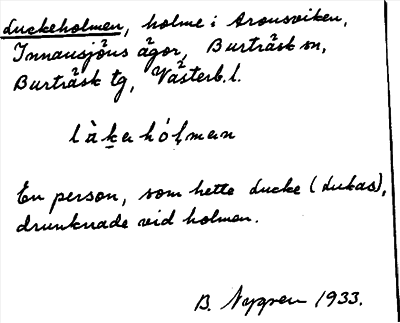 Luckeholmen, holme i Aronsviken,
Innansjöns ägor, Burträsk sn,
Burträsk tg, Västerb. l.
làkahólman
En person, som hette Lucke (Lukas),
drunknade vid holmen.
B. Nygren 1933.